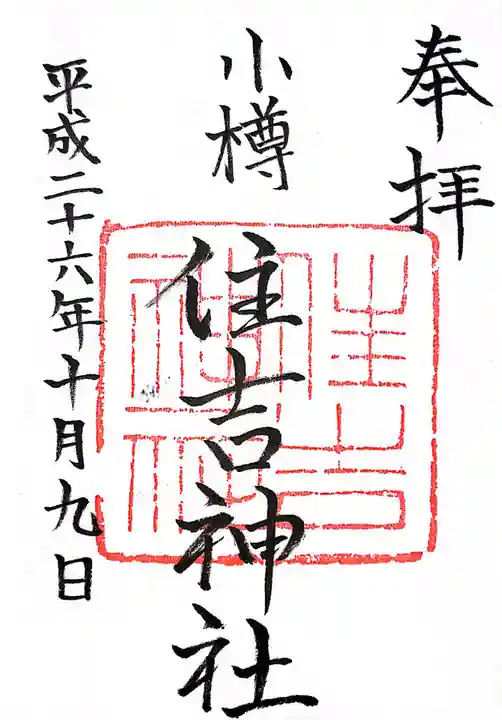 奉拝
小樽
住吉神社
平成二十六年十月九日
住吉神社